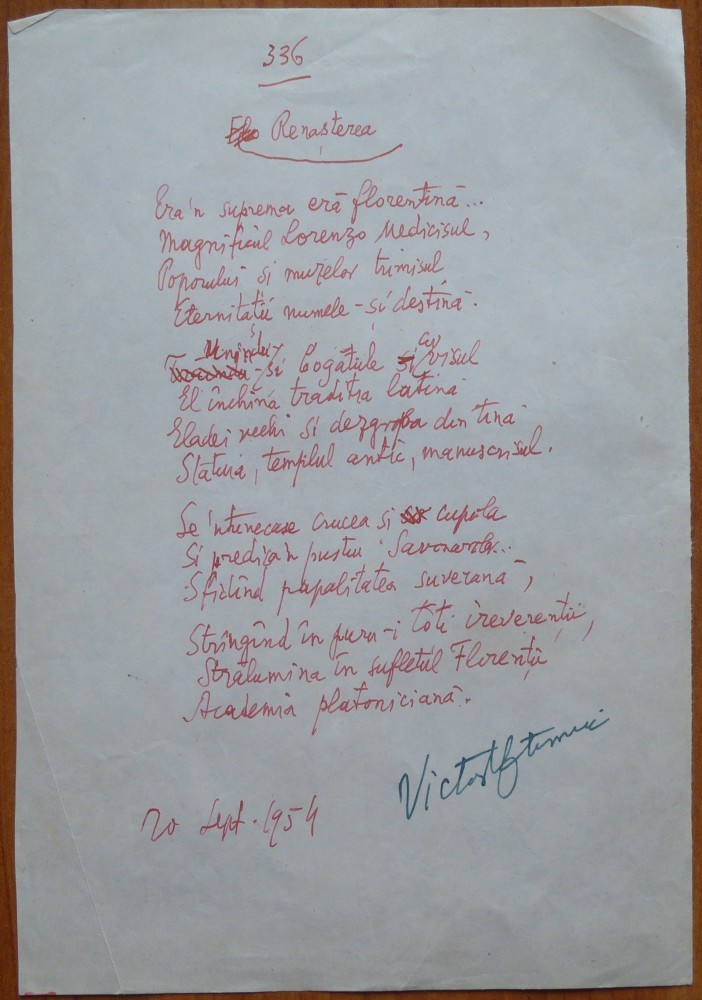 336
Renașterea
Era'n suprema eră florentină...
Magnificul Lorenzo Medicisul,
Poporului si muzelor trimisul
Eternitătii numele-și destină.
-si bogățiile cu visul
El închină traditia latină
Eladei vechi si dezgroba din tină
Statuia, templul antic, manuscrisul.
Se 'ntunecase crucea si cupola
Si predica'n pustiu Savonarola..
Sfidînd papalitatea suverană,
Strîngînd în juru-i toti ireverenții,
Strălumina în sufletul Florenții
Academia platoniciană.
Victor Eftimiu
20 Sept. 1954